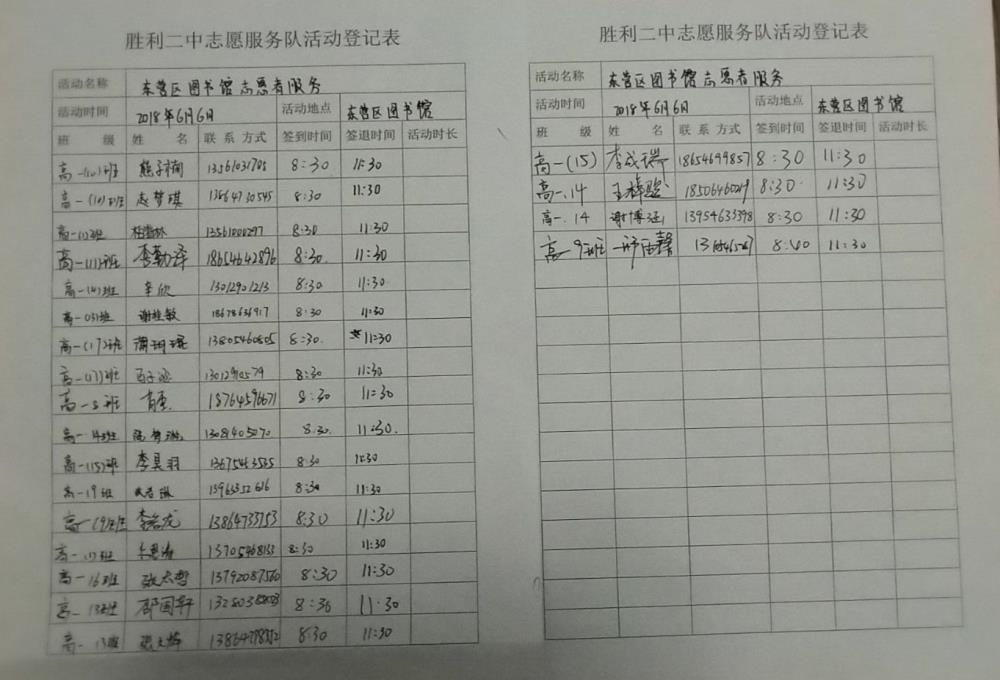 胜利二中志愿服务队活动登记表
活动名称 东营区图书馆志愿者服务
活动时间 2018年6月6日 活动地点 东营区图书馆
班 级 姓 名 联系方式 签到时间 签退时间 活动时长
高一(10)班 13561031785 8:30 11:30
高一(10)班 赵梦琪 13864730545 8:30 11:30
高一(1)班 13561000297 8:30 11:30
高一(11)班 李勤泽 18654642896 8:30 11:30
高一(4)班 辛欣 13012901213 8:30 11:30
高一(3)班 谢桂敏 18678636917 8:30 11:30
高一(17)班 13805460805 8:30 11:30
高一(17)班 8:30 11:30
高一8班 18764596671 8:30 11:30
高一14班 13081405070 8:30 11:30
高一(15)班 李昊羽 13675463535 8:30 11:30
高一19班 8:30 11:30
高一(9)班 13864733753 8:30 11:30
高一(1)班 8:30 11:30
高一16班 张志哲 13792087560 8:30 11:30
高一13班 邵国轩 8:30 11:30
高一13班 8:30 11:30
胜利二中志愿服务队活动登记表
活动名称 东营区图书馆志愿者服务
活动时间 2018年6月6日 活动地点 东营区图书馆
班 级 姓 名 联系方式 签到时间 签退时间 活动时长
高一(15) 李成瑞 18654699857 8:30 11:30
高一.14 王梓懿 8:30 11:30
高一.14 谢博涵 13954633398 8:30 11:30
高一9班 8:40 11:30